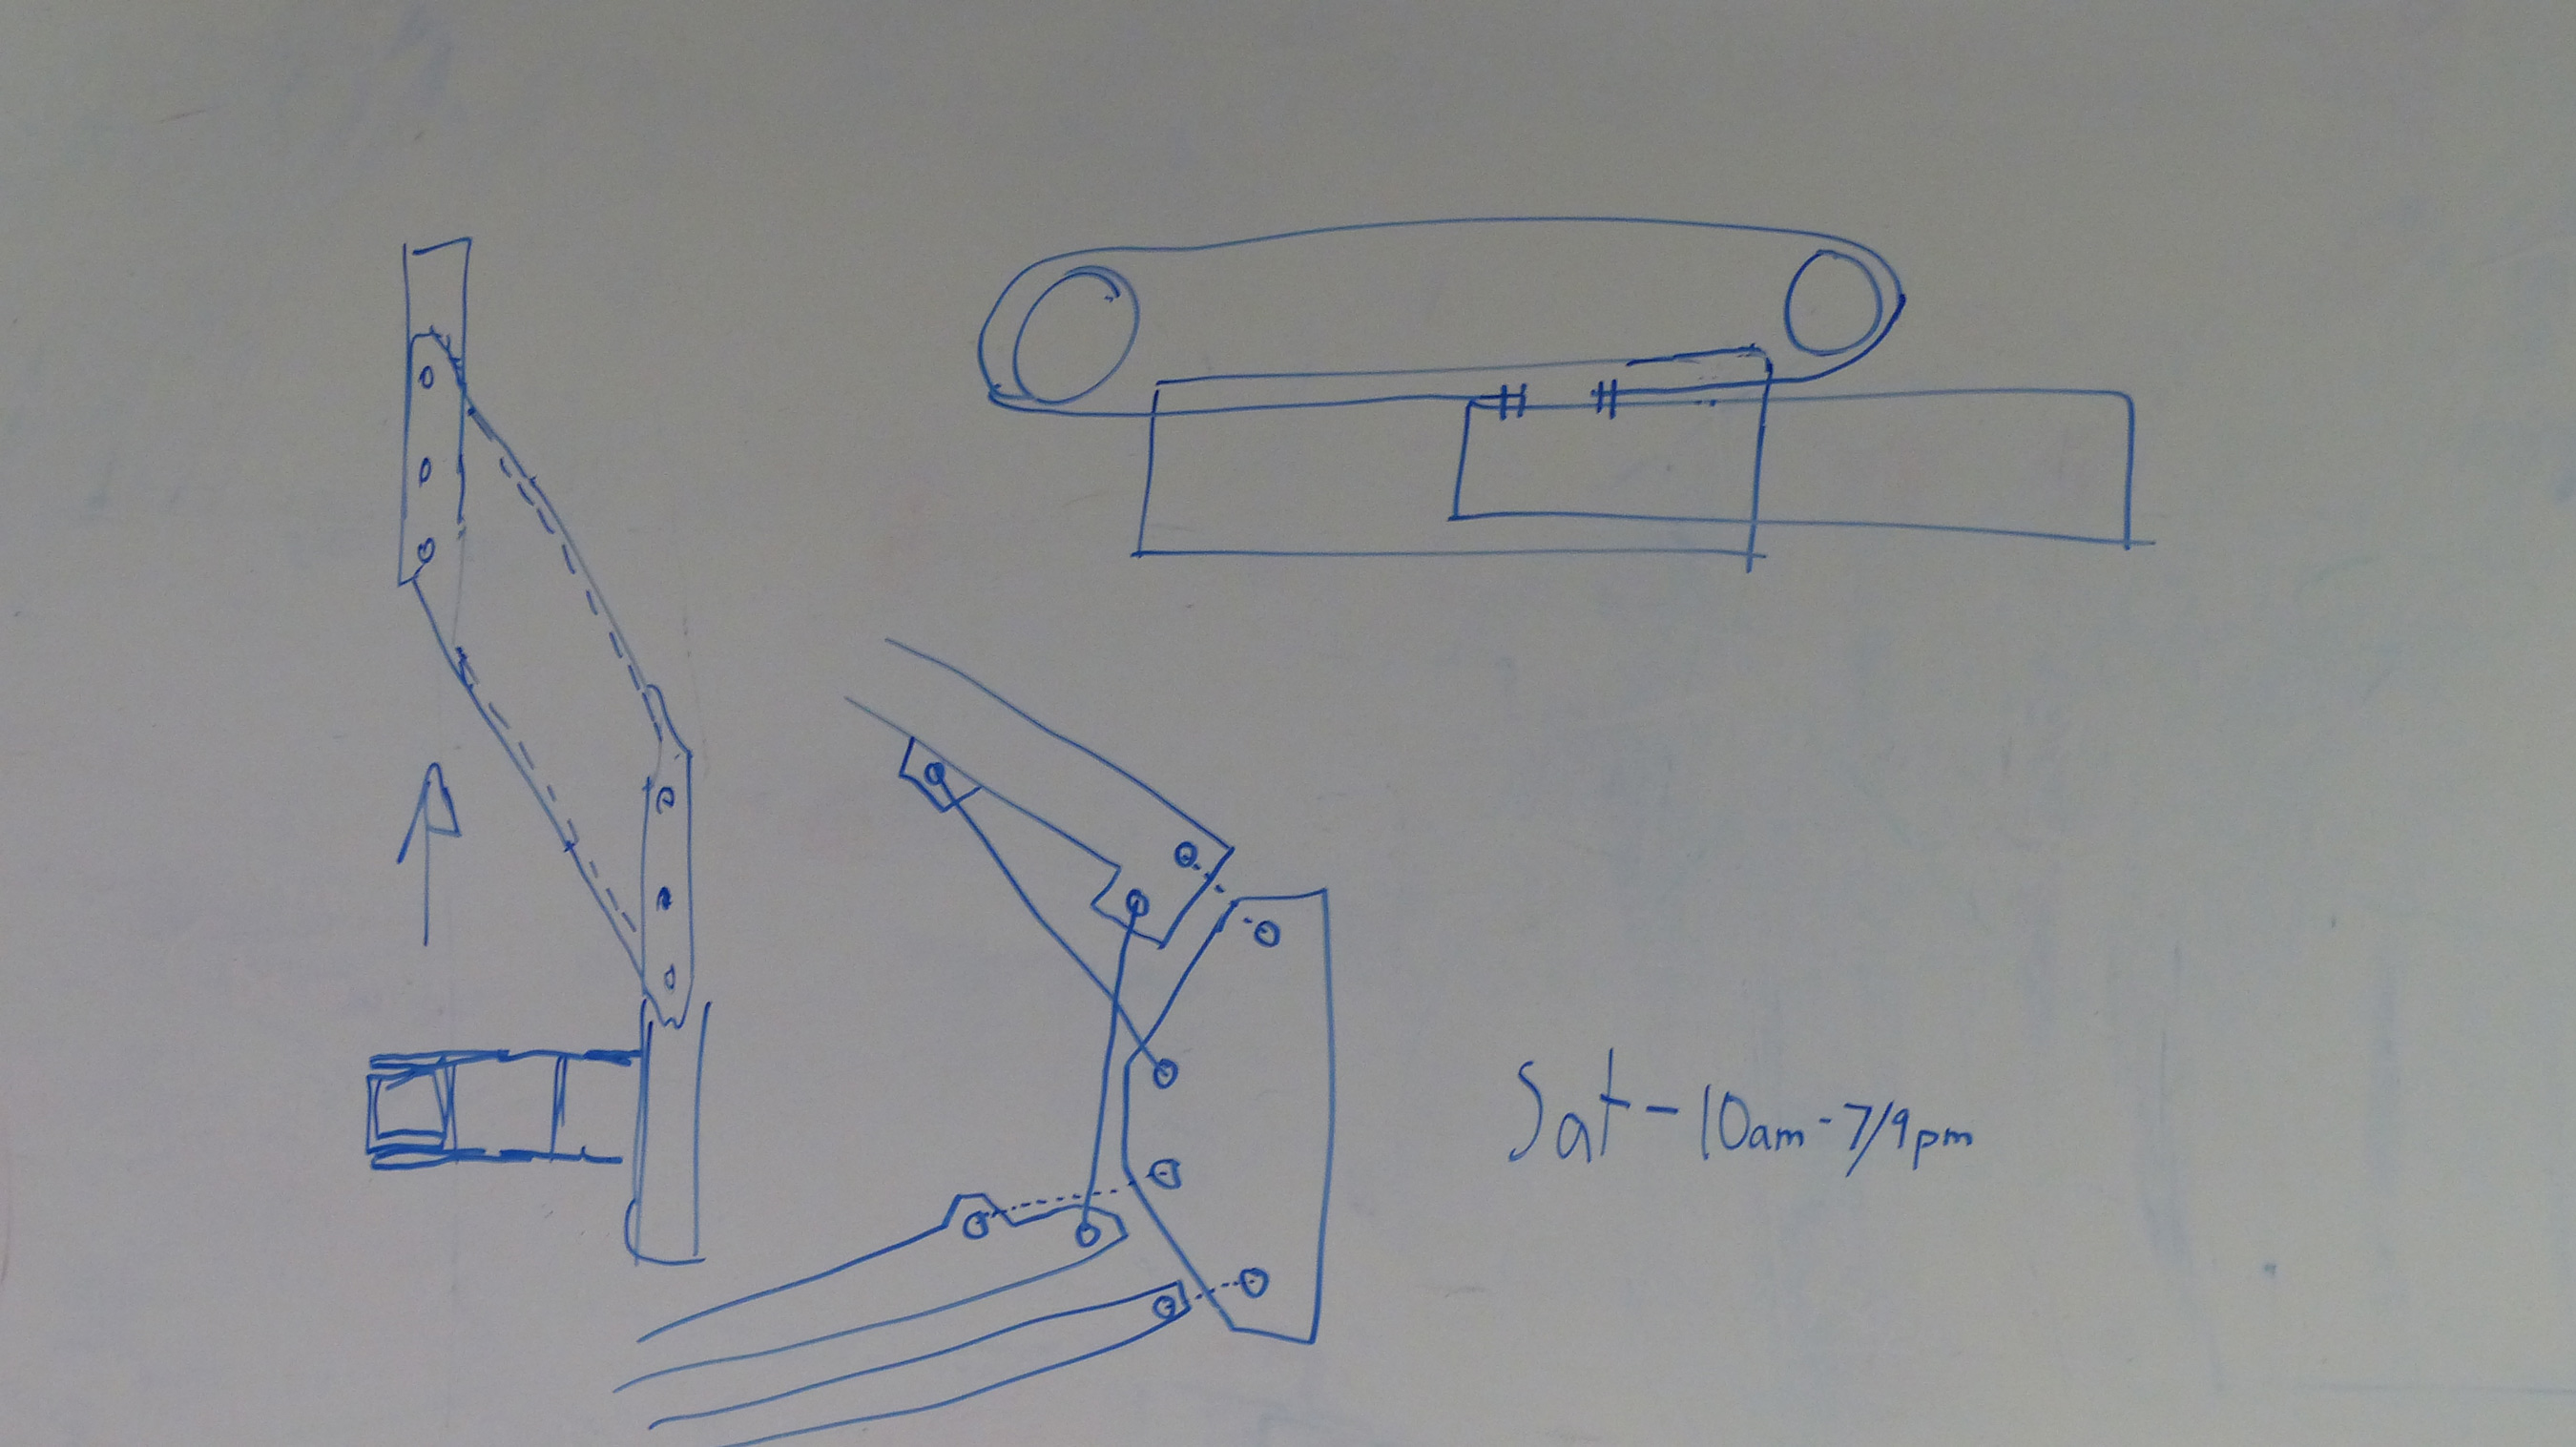 Sat - 10am - 7/9pm